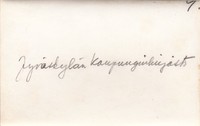 Jyväskylän kaupunginkirjasto